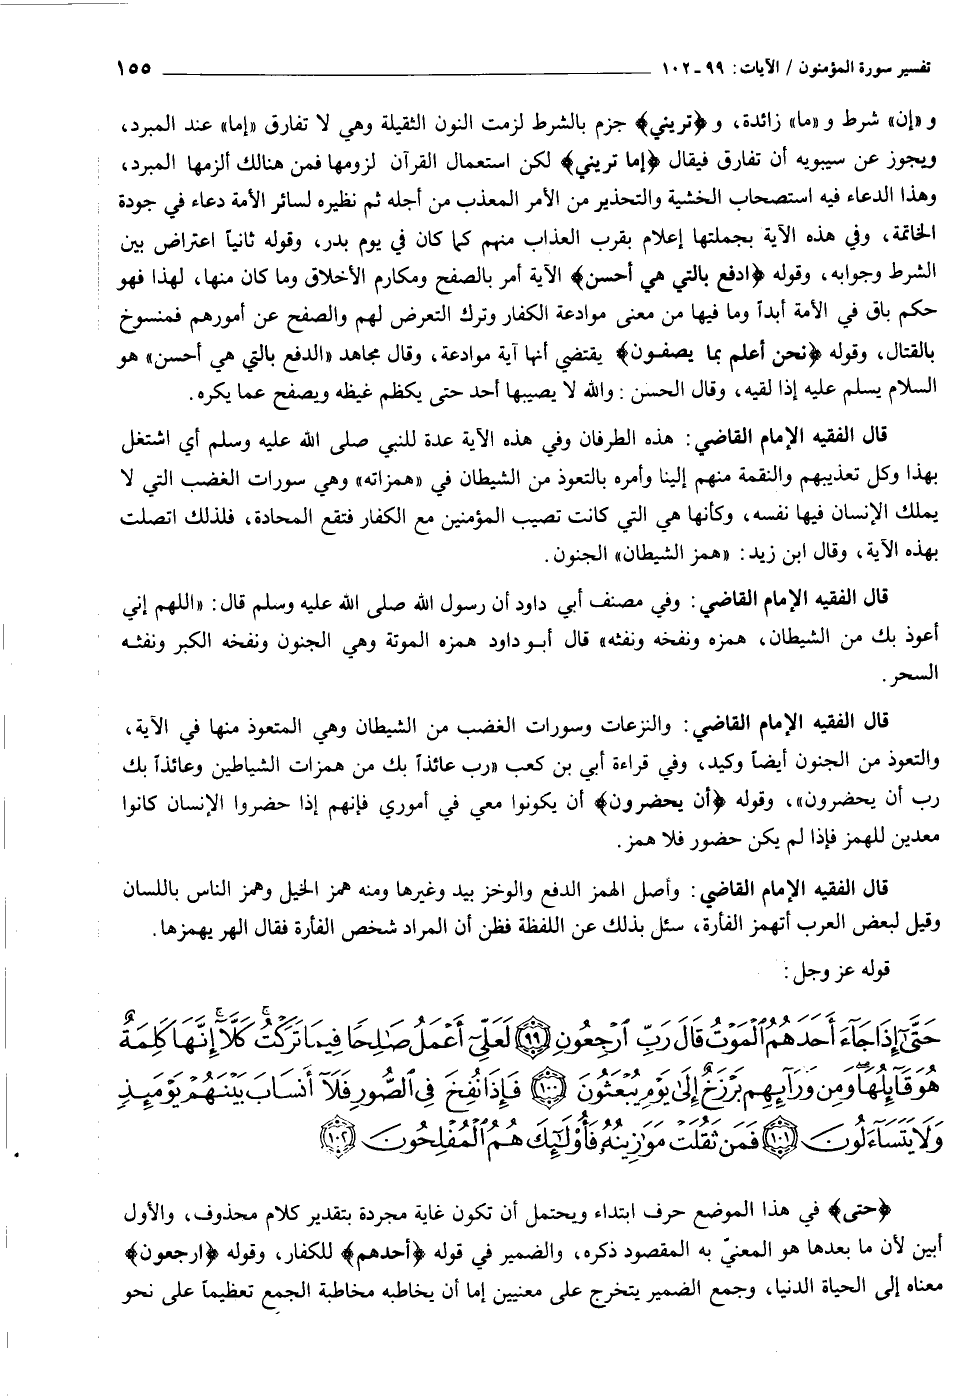 تفسير سورة المؤمنون / الآيات: ٩٩-١٠٢ ١٥٥
و «إن» شرط و «ما» زائدة، و ﴿تريني﴾ جزم بالشرط لزمت النون الثقيلة وهي لا تفارق «إما» عند المبرد،
ويجوز عن سيبويه أن تفارق فيقال ﴿إما تريني﴾ لكن استعمال القرآن لزومها فمن هنالك ألزمها المبرد،
وهذا الدعاء فيه استصحاب الخشية والتحذير من الأمر المعذب من أجله ثم نظيره لسائر الأمة دعاء في جودة
الخاتمة، وفي هذه الآية بجملتها إعلام بقرب العذاب منهم كما كان في يوم بدر، وقوله ثانياً اعتراض بين
الشرط وجوابه، وقوله ﴿ادفع بالتي هي أحسن﴾ الآية أمر بالصفح ومكارم الأخلاق وما كان منها، لهذا فهو
حكم باق في الأمة أبداً وما فيها من معنى موادعة الكفار وترك التعرض لهم والصفح عن أمورهم فمنسوخ
بالقتال، وقوله ﴿نحن أعلم بما يصفون﴾ يقتضي أنها آية موادعة، وقال مجاهد «الدفع بالتي هي أحسن» هو
السلام يسلم عليه إذا لقيه، وقال الحسن: والله لا يصيبها أحد حتى يكظم غيظه ويصفح عما يكره.
قال الفقيه الإمام القاضي: هذه الطرفان وفي هذه الآية عدة للنبي صلى الله عليه وسلم أي اشتغل
بهذا وكل تعذيبهم والنقمة منهم إلينا وأمره بالتعوذ من الشيطان في «همزاته» وهي سورات الغضب التي لا
يملك الإنسان فيها نفسه، وكأنها هي التي كانت تصيب المؤمنين مع الكفار فتقع المحادة، فلذلك اتصلت
بهذه الآية، وقال ابن زيد: «همز الشيطان» الجنون.
قال الفقيه الإمام القاضي: وفي مصنف أبي داود أن رسول الله صلى الله عليه وسلم قال: «اللهم إني
أعوذ بك من الشيطان، همزه ونفخه ونفثه» قال أبو داود همزه الموتة وهي الجنون ونفخه الكبر ونفثه
السحر.
قال الفقيه الإمام القاضي: والنزعات وسورات الغضب من الشيطان وهي المتعوذ منها في الآية،
والتعوذ من الجنون أيضاً وكيد، وفي قراءة أبي بن كعب «رب عائذاً بك من همزات الشياطين وعائذاً بك
رب أن يحضرون»، وقوله ﴿أن يحضرون﴾ أن يكونوا معي في أموري فإنهم إذا حضروا الإنسان كانوا
معدين للهمز فإذا لم يكن حضور فلا همز.
قال الفقيه الإمام القاضي: وأصل الهمز الدفع والوخز بيد وغيرها ومنه همز الخيل وهمز الناس باللسان
وقيل لبعض العرب أتهمز الفأرة، سئل بذلك عن اللفظة فظن أن المراد شخص الفأرة فقال الهر يهمزها.
قوله عز وجل:
حَتَّىٰ إِذَا جَآءَ أَحَدَهُمُ ٱلْمَوْتُ قَالَ رَبِّ ٱرْجِعُونِ ٩٩ لَعَلِّىٓ أَعْمَلُ صَٰلِحًا فِيمَا تَرَكْتُ ۚ كَلَّآ ۚ إِنَّهَا كَلِمَةٌ
هُوَ قَآئِلُهَا ۖ وَمِن وَرَآئِهِم بَرْزَخٌ إِلَىٰ يَوْمِ يُبْعَثُونَ ١٠٠ فَإِذَا نُفِخَ فِى ٱلصُّورِ فَلَآ أَنسَابَ بَيْنَهُمْ يَوْمَئِذٍ
وَلَا يَتَسَآءَلُونَ ١٠١ فَمَن ثَقُلَتْ مَوَٰزِينُهُۥ فَأُو۟لَٰٓئِكَ هُمُ ٱلْمُفْلِحُونَ ١٠٢
﴿حتى﴾ في هذا الموضع حرف ابتداء ويحتمل أن تكون غاية مجردة بتقدير كلام محذوف، والأول
أبين لأن ما بعدها هو المعنيّ به المقصود ذكره، والضمير في قوله ﴿أحدهم﴾ للكفار، وقوله ﴿ارجعون﴾
معناه إلى الحياة الدنيا، وجمع الضمير يتخرج على معنيين إما أن يخاطبه مخاطبة الجمع تعظيماً على نحو